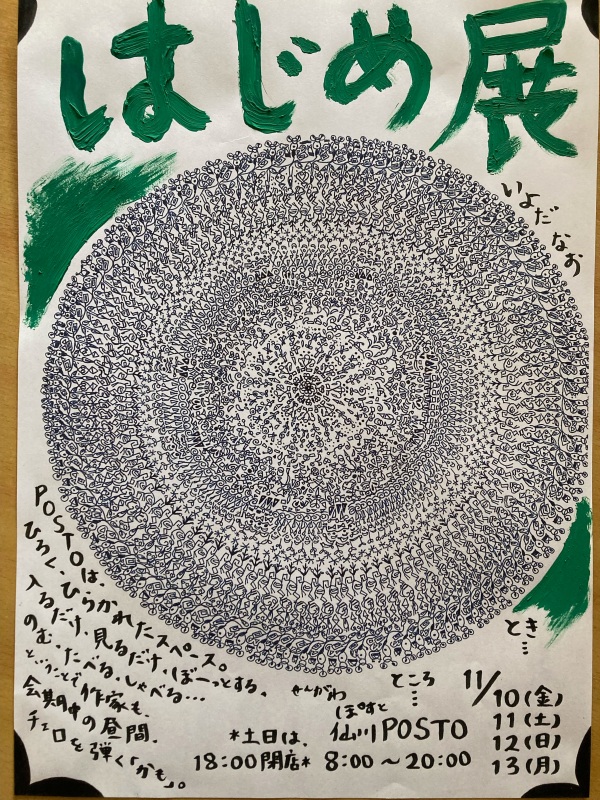 はじめ展
いよだ なお
POSTOは、
ひろく、ひらかれたスペース。
入るだけ、見るだけ、ぼーっとする、
のむ、たべる、しゃべる…
ということで作家も、
会期中の昼間、
チェロを弾く「かも」。
とき…
11/10(金)
11(土)
12(日)
13(月)
ところ…
せんがわ ぽすと
仙川POSTO
8:00～20:00
*土日は、
18:00閉店*